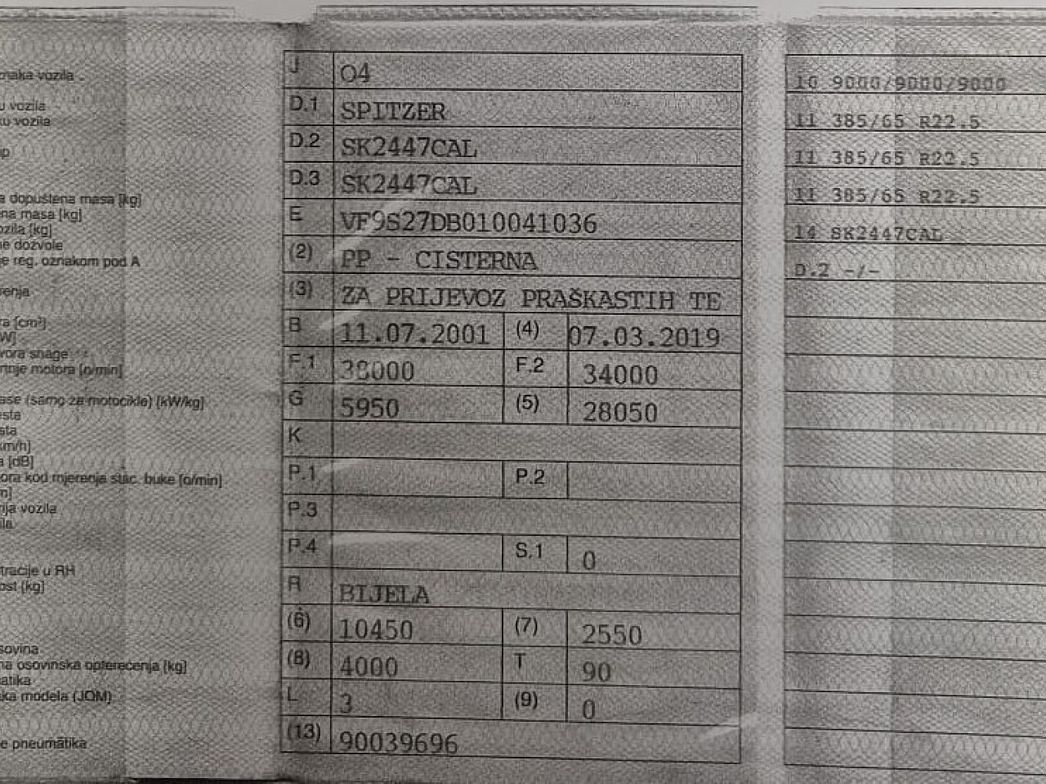 znaka vozila
u vozila
ku vozila
ip
a dopuštena masa [kg]
na masa [kg]
ozila [kg]
ne dozvole
je reg. oznakom pod A
renja
ra [cm³]
W]
vora snage
rtnje motora [o/min]
ase (samo za motocikle) [kW/kg]
esta
sta
km/h]
a [dB]
ora kod mjerenja stac. buke [o/min]
m]
nja vozila
ila
tracije u RH
ost [kg]
sovina
na osovinska opterećenja [kg]
atika
ka modela (JOM)
e pneumatika
J O4
D.1 SPITZER
D.2 SK2447CAL
D.3 SK2447CAL
E VF9S27DB010041036
(2) PP - CISTERNA
(3) ZA PRIJEVOZ PRAŠKASTIH TE
B 11.07.2001 (4) 07.03.2019
F.1 38000 F.2 34000
G 5950 (5) 28050
K
P.1 P.2
P.3
P.4 S.1 0
R BIJELA
(6) 10450 (7) 2550
(8) 4000 T 90
L 3 (9) 0
(13) 90039696
10 9000/9000/9000
11 385/65 R22.5
11 385/65 R22.5
11 385/65 R22.5
14 SK2447CAL
D.2 -/-